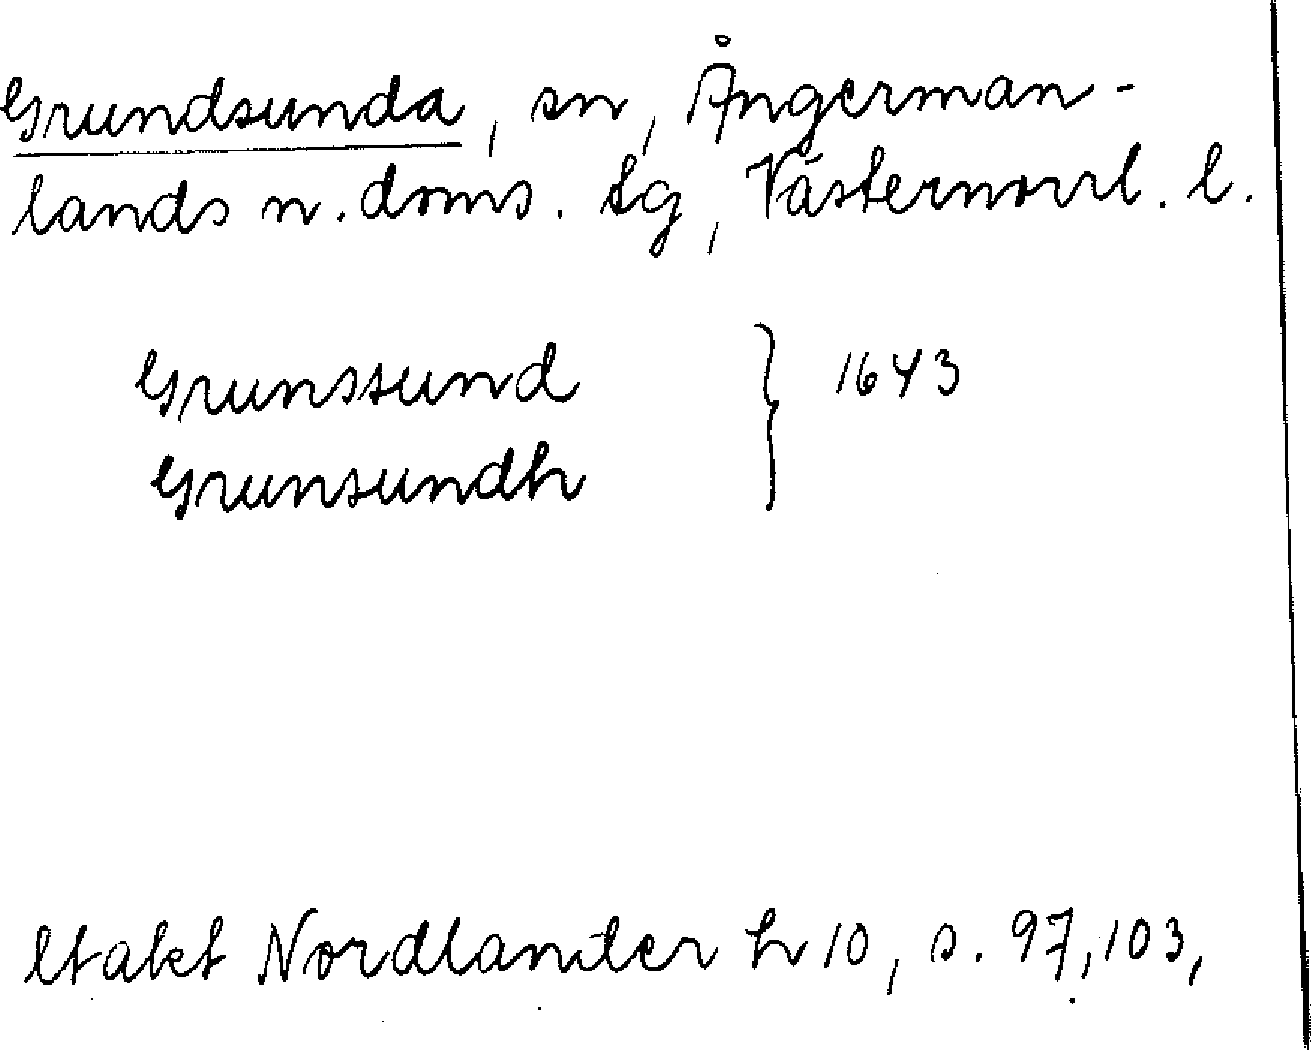 Grundsunda, sn, Ångerman-
lands n. doms. tg, Västernorrl. l.
Grunssund } 1643
Grunsundh
Utakt Nordlander h 10, s. 97, 103,